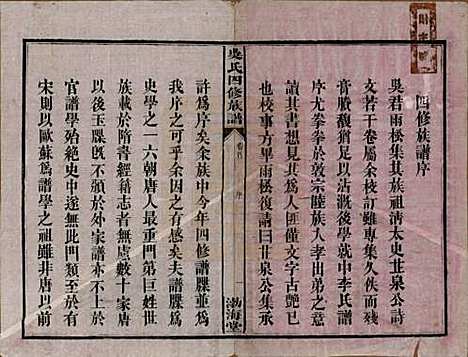 四修族譜序
吳君雨松集其族祖清太史芷泉公詩
文若干卷屬余校訂雖專集久佚而殘
膏賸馥猶足以沾漑後學就中李氏譜
序尤拳拳於敦宗睦族人孝出弟之意
三復想見其為人匪僅文字古艶已
也校事方畢雨松復請曰芷泉公譜
吳氏四修族譜
卷首
序
渤海堂
許為序矣余族中今年四修譜牒重為
我序之可乎余因之有感矣夫譜牒為
史學之一六朝唐人最重門弟巨姓世
族載於隋書經籍志者無慮數十家唐
以後玉牒旣不頒於外家譜亦不上於
官譜學殆絕史中遂無此門類至於近
宋則以歐蘇為譜學之祖雖非唐以前